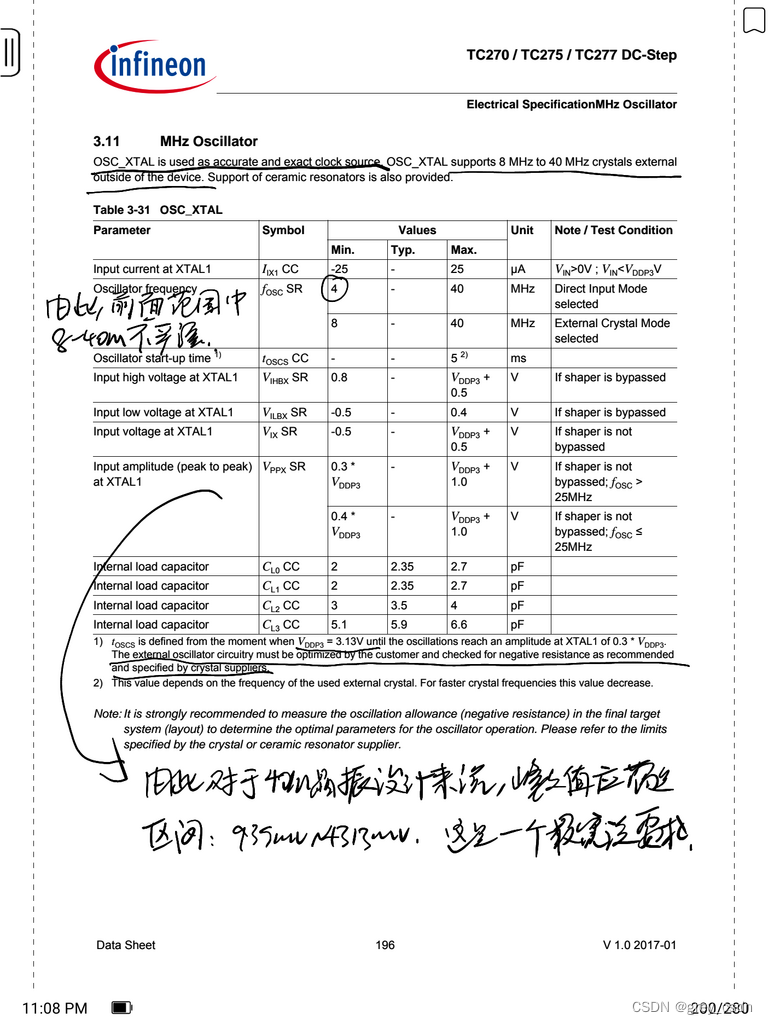 infineon
TC270 / TC275 / TC277 DC-Step
Electrical SpecificationMHz Oscillator
3.11 MHz Oscillator
OSC_XTAL is used as accurate and exact clock source. OSC_XTAL supports 8 MHz to 40 MHz crystals external
outside of the device. Support of ceramic resonators is also provided.
Table 3-31 OSC_XTAL
Parameter Symbol Values Unit Note / Test Condition
Min. Typ. Max.
Input current at XTAL1 IIX1 CC -25 - 25 µA VIN>0V ; VIN<VDDP3V
Oscillator frequency fOSC SR 4 - 40 MHz Direct Input Mode
selected
由此,前面范围中
8 - 40 MHz External Crystal Mode
selected
8-40m不严谨.
Oscillator start-up time 1) tOSCS CC - - 5 2) ms
Input high voltage at XTAL1 VIHBX SR 0.8 - VDDP3 + V If shaper is bypassed
0.5
Input low voltage at XTAL1 VILBX SR -0.5 - 0.4 V If shaper is bypassed
Input voltage at XTAL1 VIX SR -0.5 - VDDP3 + V If shaper is not
0.5 bypassed
Input amplitude (peak to peak) VPPX SR 0.3 * - VDDP3 + V If shaper is not
at XTAL1 VDDP3 1.0 bypassed; fOSC >
25MHz
0.4 * - VDDP3 + V If shaper is not
VDDP3 1.0 bypassed; fOSC ≤
25MHz
Internal load capacitor CL0 CC 2 2.35 2.7 pF
Internal load capacitor CL1 CC 2 2.35 2.7 pF
Internal load capacitor CL2 CC 3 3.5 4 pF
Internal load capacitor CL3 CC 5.1 5.9 6.6 pF
1) tOSCS is defined from the moment when VDDP3 = 3.13V until the oscillations reach an amplitude at XTAL1 of 0.3 * VDDP3.
The external oscillator circuitry must be optimized by the customer and checked for negative resistance as recommended
and specified by crystal suppliers.
2) This value depends on the frequency of the used external crystal. For faster crystal frequencies this value decrease.
Note: It is strongly recommended to measure the oscillation allowance (negative resistance) in the final target
system (layout) to determine the optimal parameters for the oscillator operation. Please refer to the limits
specified by the crystal or ceramic resonator supplier.
由此,对于40m晶振设计来说,峰峰值应落这
区间: 939mv~4313mv. 这是一个
Data Sheet 196 V 1.0 2017-01
11:08 PM 200/280
CSDN